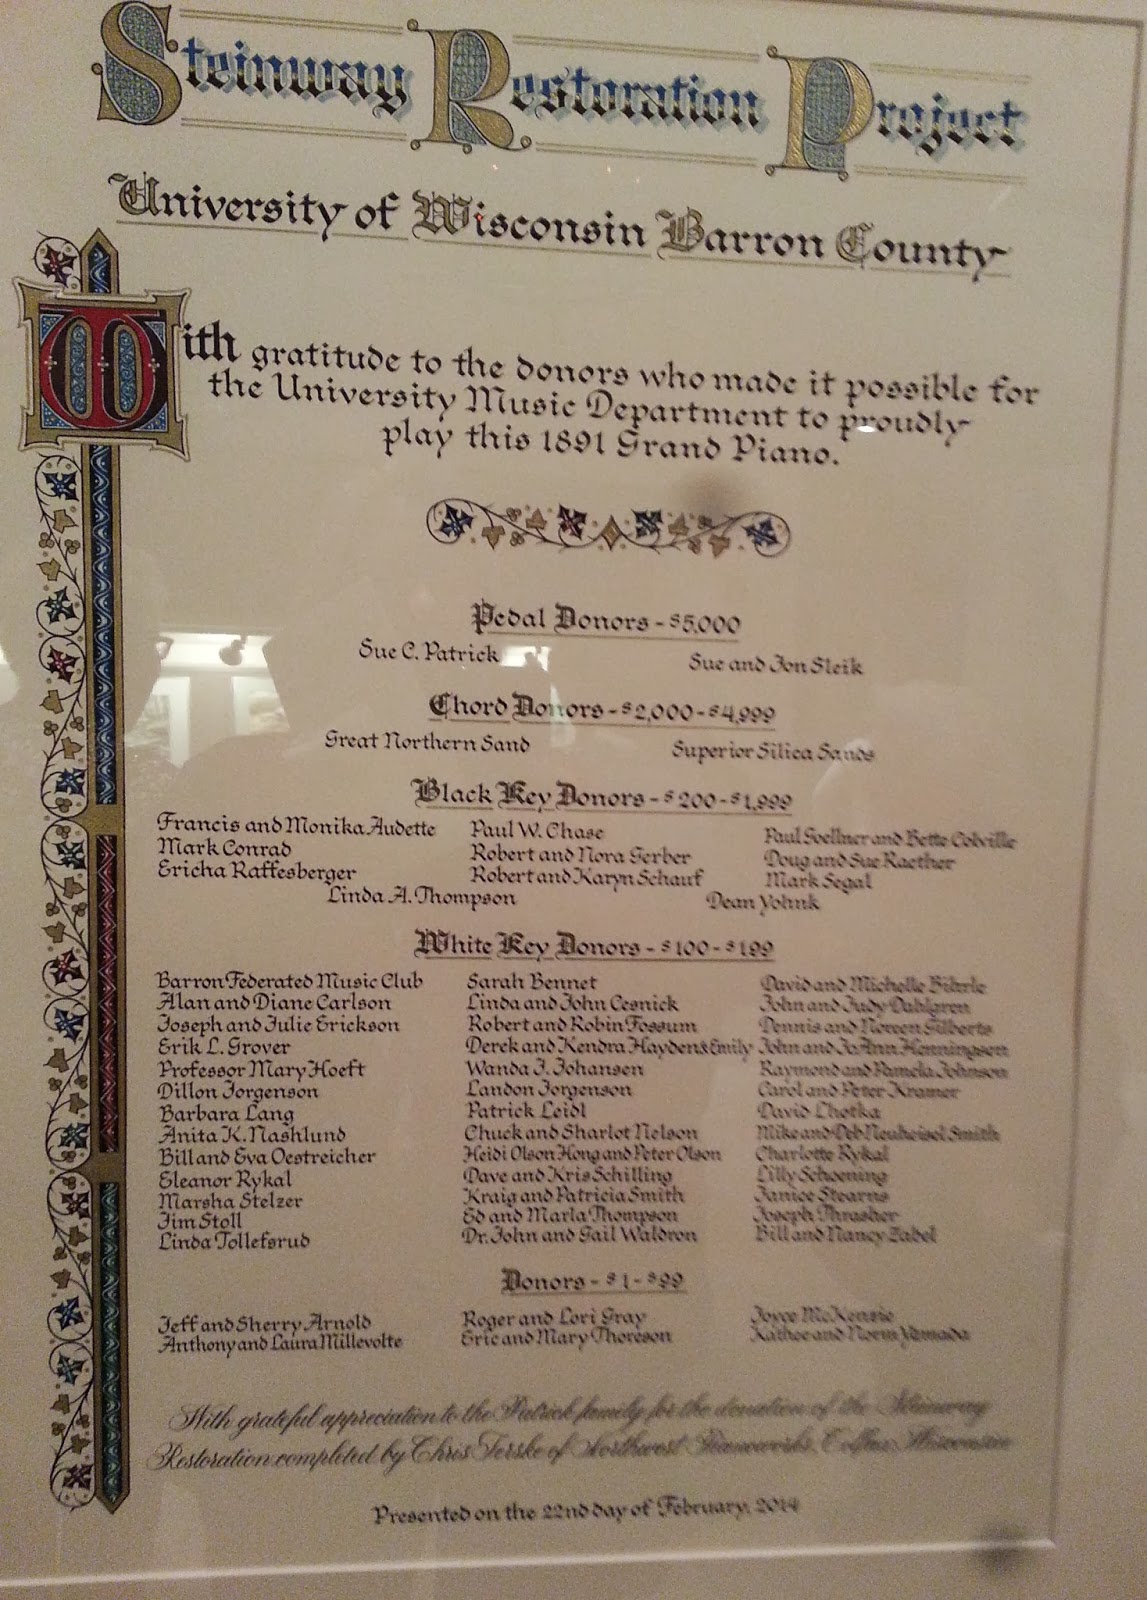 Steinway Restoration Project
University of Wisconsin Barron County
With gratitude to the donors who made it possible for
the University Music Department to proudly
play this 1891 Grand Piano.
Pedal Donors - $5,000
Sue C. Patrick Sue and Jon Sleik
Chord Donors - $2,000 - $4,999
Great Northern Sand Superior Silica Sands
Black Key Donors - $200 - $1,999
Francis and Monika Audette Paul W. Chase Paul Soellner and Bette Colville
Mark Conrad Robert and Nora Gerber Doug and Sue Raether
Ericha Raffesberger Robert and Karyn Schauf Mark Segal
Linda A. Thompson Dean Yohnk
White Key Donors - $100 - $199
Barron Federated Music Club Sarah Bennet David and Michelle
Alan and Diane Carlson Linda and John Cesnick John and Judy Dahlgren
Joseph and Julie Erickson Robert and Robin Fossum Dennis and Noreen Gilberts
Erik L. Grover Derek and Kendra Hayden & Emily John and JoAnn Henningson
Professor Mary Hoeft Wanda J. Johansen Raymond and Pamela Johnson
Dillon Jorgenson Landon Jorgenson Carol and Peter Kramer
Barbara Lang Patrick Leidl David Lhotka
Anita K. Nashlund Chuck and Sharlot Nelson Mike and Deb Neuheisel Smith
Bill and Eva Oestreicher Heidi Olson Hong and Peter Olson Charlotte Rykal
Eleanor Rykal Dave and Kris Schilling Lilly Schoening
Marsha Stelzer Kraig and Patricia Smith Janice Stearns
Jim Stoll Ed and Marla Thompson Joseph Thrasher
Linda Tollefsrud Dr. John and Gail Waldron Bill and Nancy Zabel
Donors - $1 - $99
Jeff and Sherry Arnold Roger and Lori Gray Joyce McKenzie
Anthony and Laura Millevolte Eric and Mary Thoreson Kathee and Norm Yamada
With grateful appreciation to the Patrick family for the donation of the Steinway
Restoration completed by Chris Terske of Northwest Pianoworks, Colfax, Wisconsin
Presented on the 22nd day of February, 2014